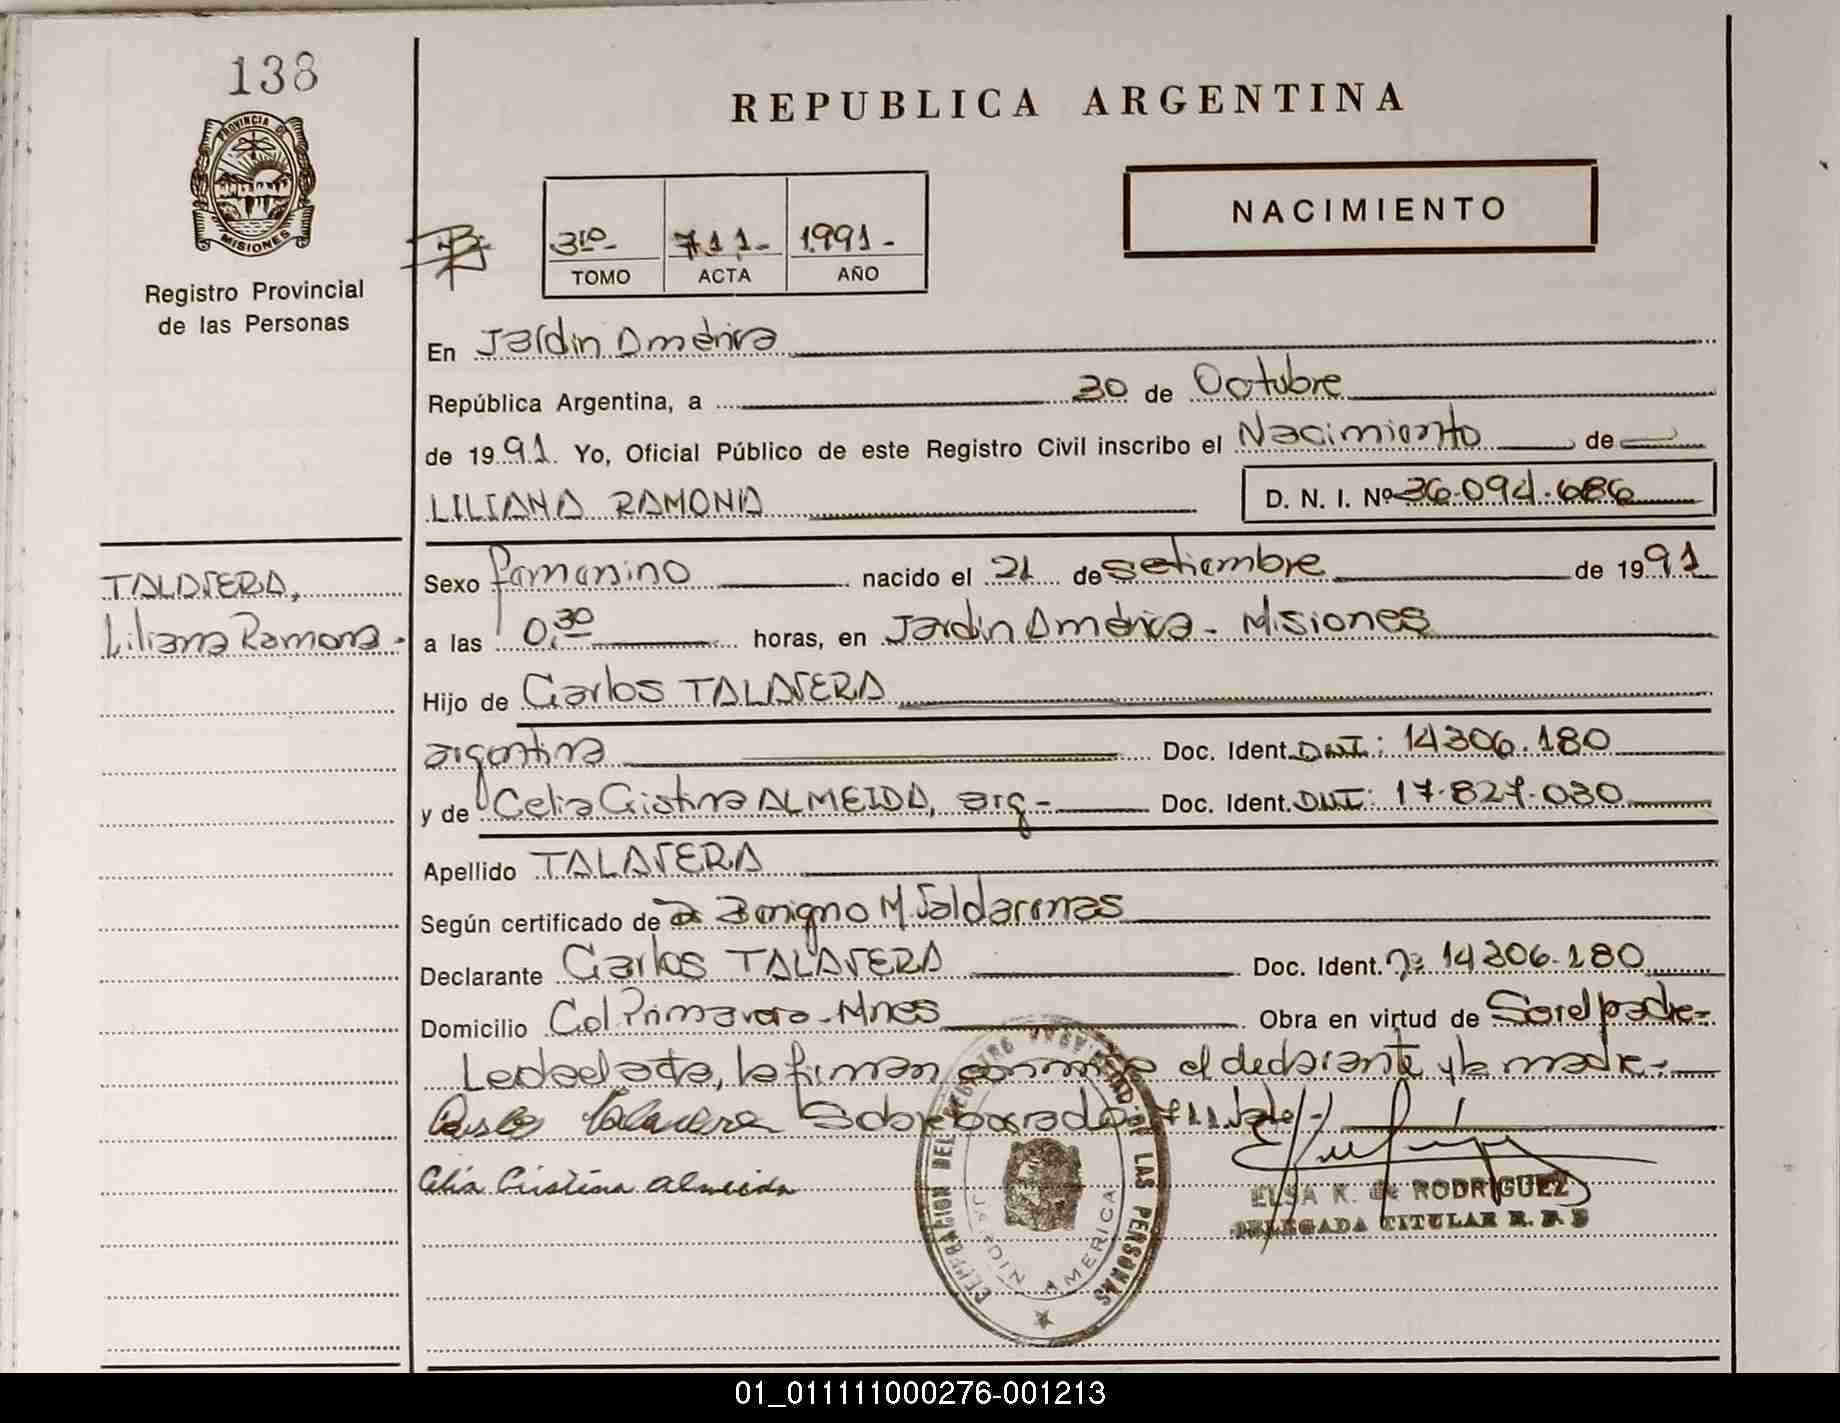 138
REPUBLICA ARGENTINA
PROVINCIA DE
MISIONES
Registro Provincial
de las Personas
NACIMIENTO
3ro- 711- 1991-
TOMO ACTA AÑO
En Jardín América
República Argentina, a 30 de Octubre
de 1991. Yo, Oficial Público de este Registro Civil inscribo el Nacimiento de
LILIANA RAMONA D. N. I. Nº 36.094.686
TALAVERA,
Liliana Ramona-
Sexo femenino nacido el 21 de setiembre de 1991
a las 0,30 horas, en Jardín América - Misiones
Hijo de Carlos TALAVERA
argentina Doc. Ident. DNI: 14306.180
y de Celia Cristina ALMEIDA, arg- Doc. Ident. DNI: 17.827.030
Apellido TALAVERA
Según certificado de Benigno M. Valdarenas
Declarante Carlos TALAVERA Doc. Ident. nº 14306.180
Domicilio Col. Primavera - Mnes Obra en virtud de Ser el padre-
Leída el acta, la firman conmigo el declarante y la madre-
Carlos Talavera Sobreborrado: 711. Vale/-
Celia Cristina Almeida
ELSA R. de RODRIGUEZ
DELEGADA TITULAR R. P. P
DELEGACION DEL REGISTRO PROVINCIAL DE LAS PERSONAS
JARDIN AMERICA
01_011111000276-001213